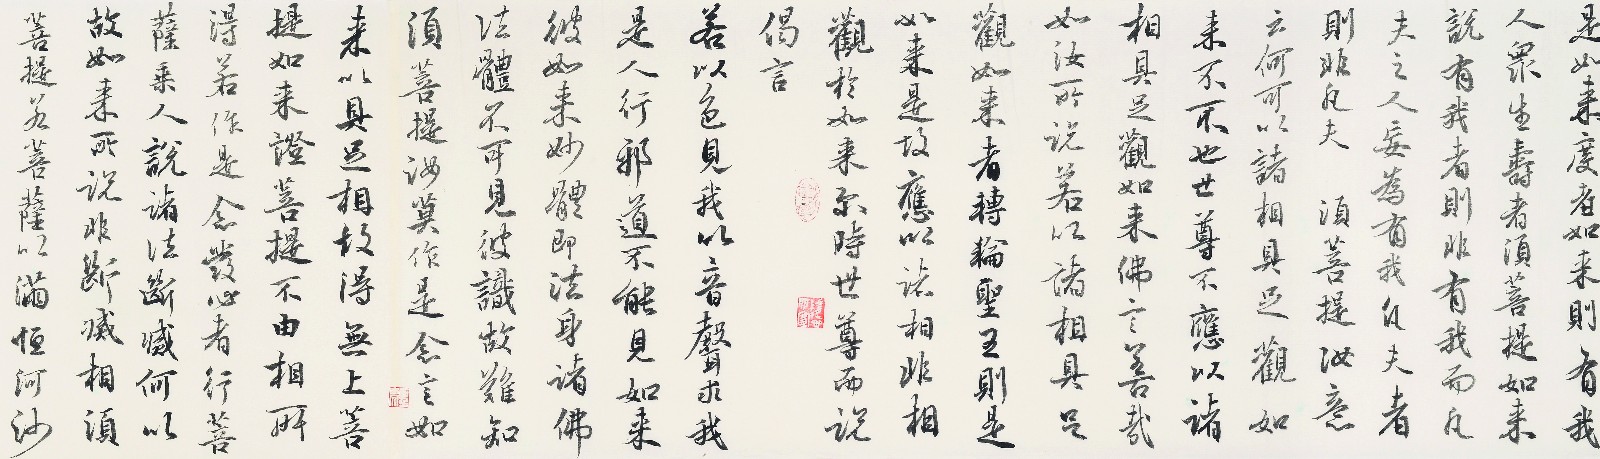 是如来度者如来則有我
人衆生壽者須菩提如来
說有我者則非有我而凡
夫之人妄為有我凡夫者
則非凡夫 須菩提汝意
云何可以諸相具足觀如
来不不也世尊不應以諸
相具足觀如来佛言善哉
如汝所说若以諸相具足
觀如来者轉輪聖王則是
如来是故應以諸相非相
觀於如来尔時世尊而说
偈言
若以色見我以音聲求我
是人行邪道不能見如来
彼如来妙體即法身諸佛
法體不可見彼識故難知
須菩提汝莫作是念言如
来以具足相故得無上菩
提如来證菩提不由相所
得若作是念發心者行菩
薩乘人說諸法斷滅何以
故如来所说非斷滅相須
菩提若菩薩以滿恒河沙